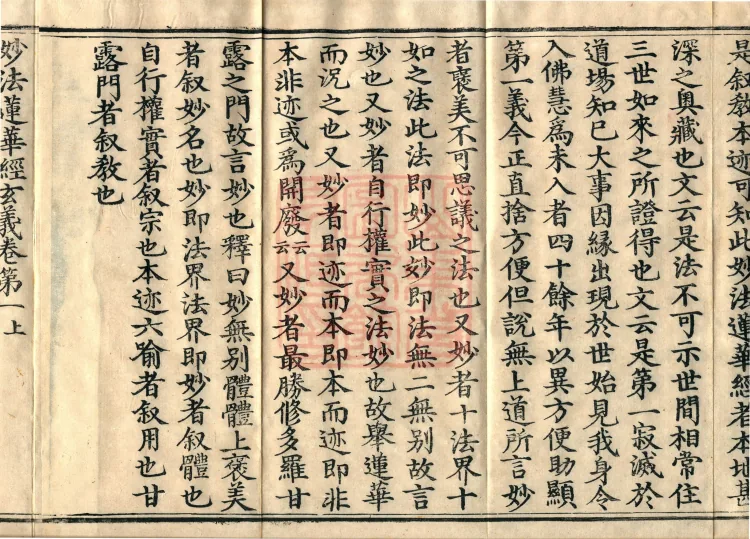 是叙教本迹可知此妙法蓮華經者本地甚
深之奥藏也文云是法不可示世間相常住
三世如來之所證得也文云是第一寂滅於
道場知已大事因緣出現於世始見我身令
入佛慧爲未入者四十餘年以異方便助顯
第一義今正直捨方便但說無上道所言妙
者褒美不可思議之法也又妙者十法界十
如之法此法即妙此妙即法無二無別故言
妙也又妙者自行權實之法妙也故舉蓮華
而况之也又妙者即迹而本即本而迹即非
本非迹或爲開廢云云又妙者最勝修多羅甘
露之門故言妙也釋曰妙無別體體上褒美
者叙妙名也妙即法界法界即妙者叙體也
自行權實者叙宗也本迹六喻者叙用也甘
露門者叙教也
妙法蓮華經玄義卷第一上